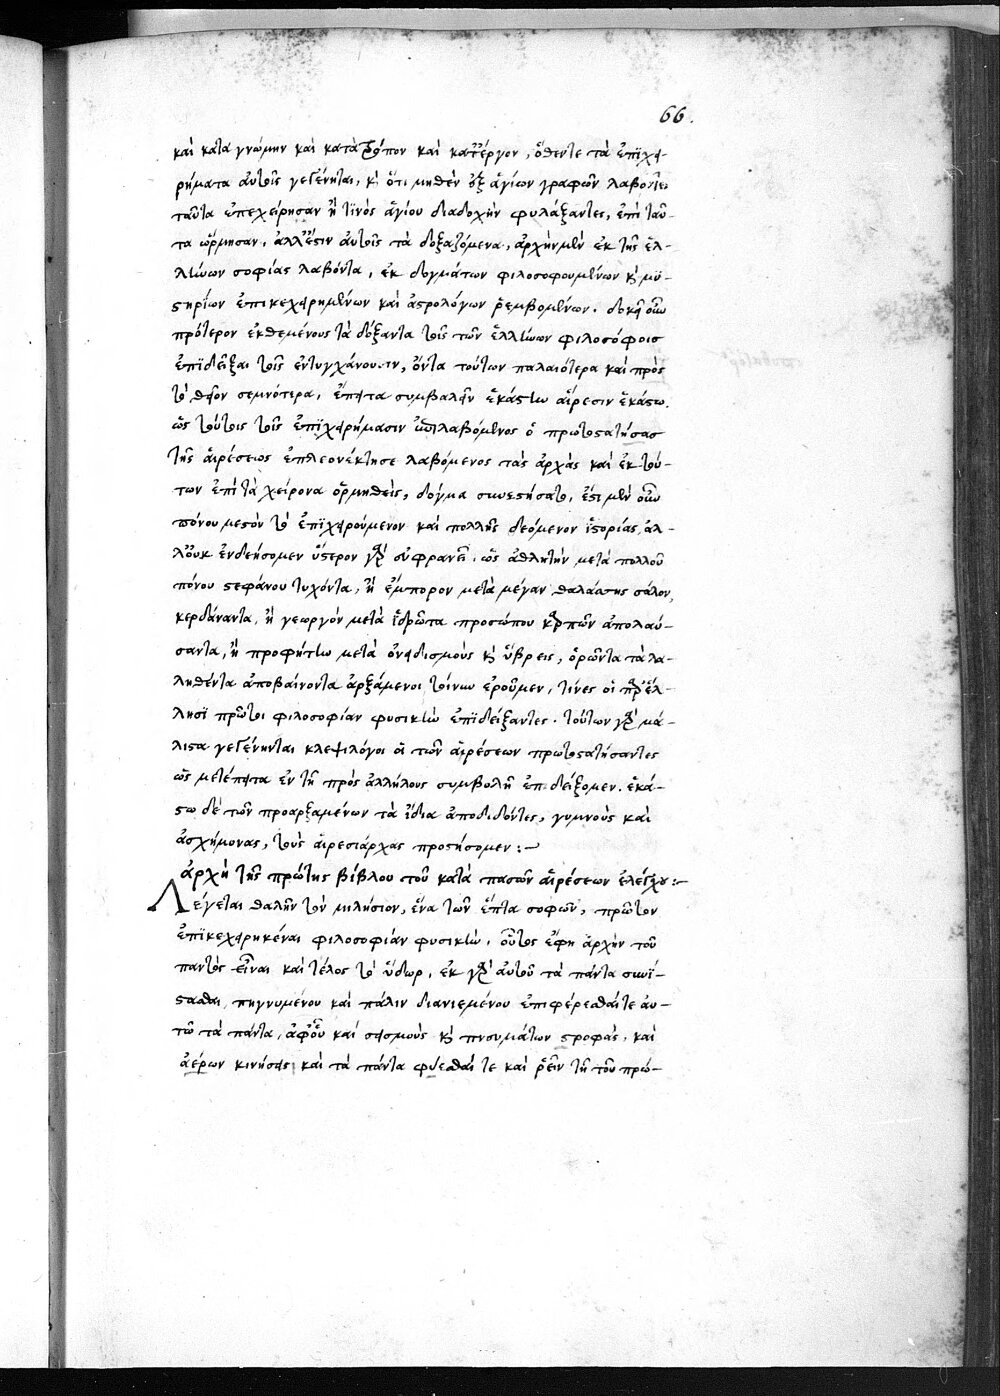 66.
καὶ κατα γνώμην καὶ κατὰ τρόπον καὶ κατ' ἔργον, ὅθεν τε τὰ ἐπϊχει-
ρήματα αὐτοῖς γεγένηται, κὶ ὅτι μηθὲν ἐξ ἁγίων γραφῶν λαβόντες
ταῦτα ἐπεχείρησαν ἤ τινὸς ἁγίου διαδοχὴν φυλάξαντες, ἐπὶ ταῦ-
τα ὥρμησαν, ἀλλ' ἔστιν αὐτοῖς τὰ δοξαζόμενα, ἀρχὴν μὲν ἐκ τῆς ἑλ-
λήνων σοφίας λαβόντα, ἐκ δογμάτων φιλοσοφουμένων κὶ μυ-
στηρίων ἐπικεχειρημένων καὶ ἀστρολόγων ῥεμβομένων. δοκεῖ οὖν
πρότερον ἐκθεμένους τὰ δόξαντα τοῖς τῶν ἑλλήνων φιλοσόφοις
ἐπϊδεῖξαι τοῖς ἐντυγχάνουσιν, ὄντα τούτων παλαιότερα καὶ πρὸς
τὸ θεῖον σεμνότερα, ἔπειτα συμβαλεῖν ἑκάστην αἵρεσιν ἑκάστω.
ὡς τούτοις τοῖς ἐπϊχειρήμασιν ἐπιλαβόμενος ὁ πρωτοστατήσας
τῆς αἱρέσεως ἐπλεονέκτησε λαβόμενος τὰς ἀρχὰς καὶ ἐκ τού-
των ἐπὶ τὰ χείρονα ὁρμηθεὶς, δόγμα συνεστήσατο, ἔστι μὲν οὖν
πόνου μεστὸν τὸ ἐπϊχειρούμενον καὶ πολλῆς δεόμενον ἱστορίας, ἀλ-
λ' οὐκ ἐνδεήσομεν ὕστερον γὰρ εὐφρανεῖ. ὡς ἀθλητὴν μετὰ πολλοῦ
πόνου στεφάνου τυχόντα, ἢ ἔμπορον μετὰ μέγαν θαλάσσης σάλον,
κερδάναντα, ἢ γεωργὸν μετὰ ἱδρῶτα προσώπου καρπῶν ἀπολαύ-
σαντα, ἢ προφήτην μετὰ ὀνειδισμοὺς κὶ ὕβρεις, ὁρῶντα τὰ λα-
ληθέντα ἀποβαίνοντα ἀρξάμενοι τοίνυν ἐροῦμεν, τίνες οἱ παρ' ἕλ-
λησϊ πρῶτοι φιλοσοφίαν φυσικὴν ἐπϊδείξαντες. τούτων γὰρ μά-
λιστα γεγένηνται κλεψιλόγοι οἱ τῶν αἱρέσεων πρωτοστατήσαντες
ὡς μετέπειτα ἐν τῆ πρὸς ἀλλήλους συμβολῆ ἐπιδείξομεν. ἑκά-
στω δὲ τῶν προαρξαμένων τὰ ἴδια ἀποδιδόντες, γυμνοὺς καὶ
ἀσχήμονας, τοὺς αἱρεσιάρχας προστήσομεν :-
ἀρχὴ τῆς πρώτης βίβλου τοῦ κατὰ πασῶν αἱρέσεων ἐλέγχου:-
Λέγεται θαλῆν τὸν μιλήσιον, ἕνα τῶν ἑπτα σοφῶν, πρῶτον
ἐπϊκεχειρηκέναι φιλοσοφίαν φυσικὴν. οὗτος ἔφη ἀρχὴν τοῦ
παντὸς εἶναι καὶ τέλος τὸ ὕδωρ, ἐκ γὰρ αὐτοῦ τὰ πάντα συνΐ-
στασθαι πηγνυμένου καὶ πάλιν διανιεμένου ἐπιφέρεσθαί τε αὐ-
τῶ τὰ πάντα, ἀφ' οὗ καί σεισμοὺς κὶ πνευμάτων στροφὰς, καὶ
ἀέρων κινήσεις καὶ τὰ πάντα φύεσθαί τε καὶ ῥεῖν τῆ τοῦ πρώ-